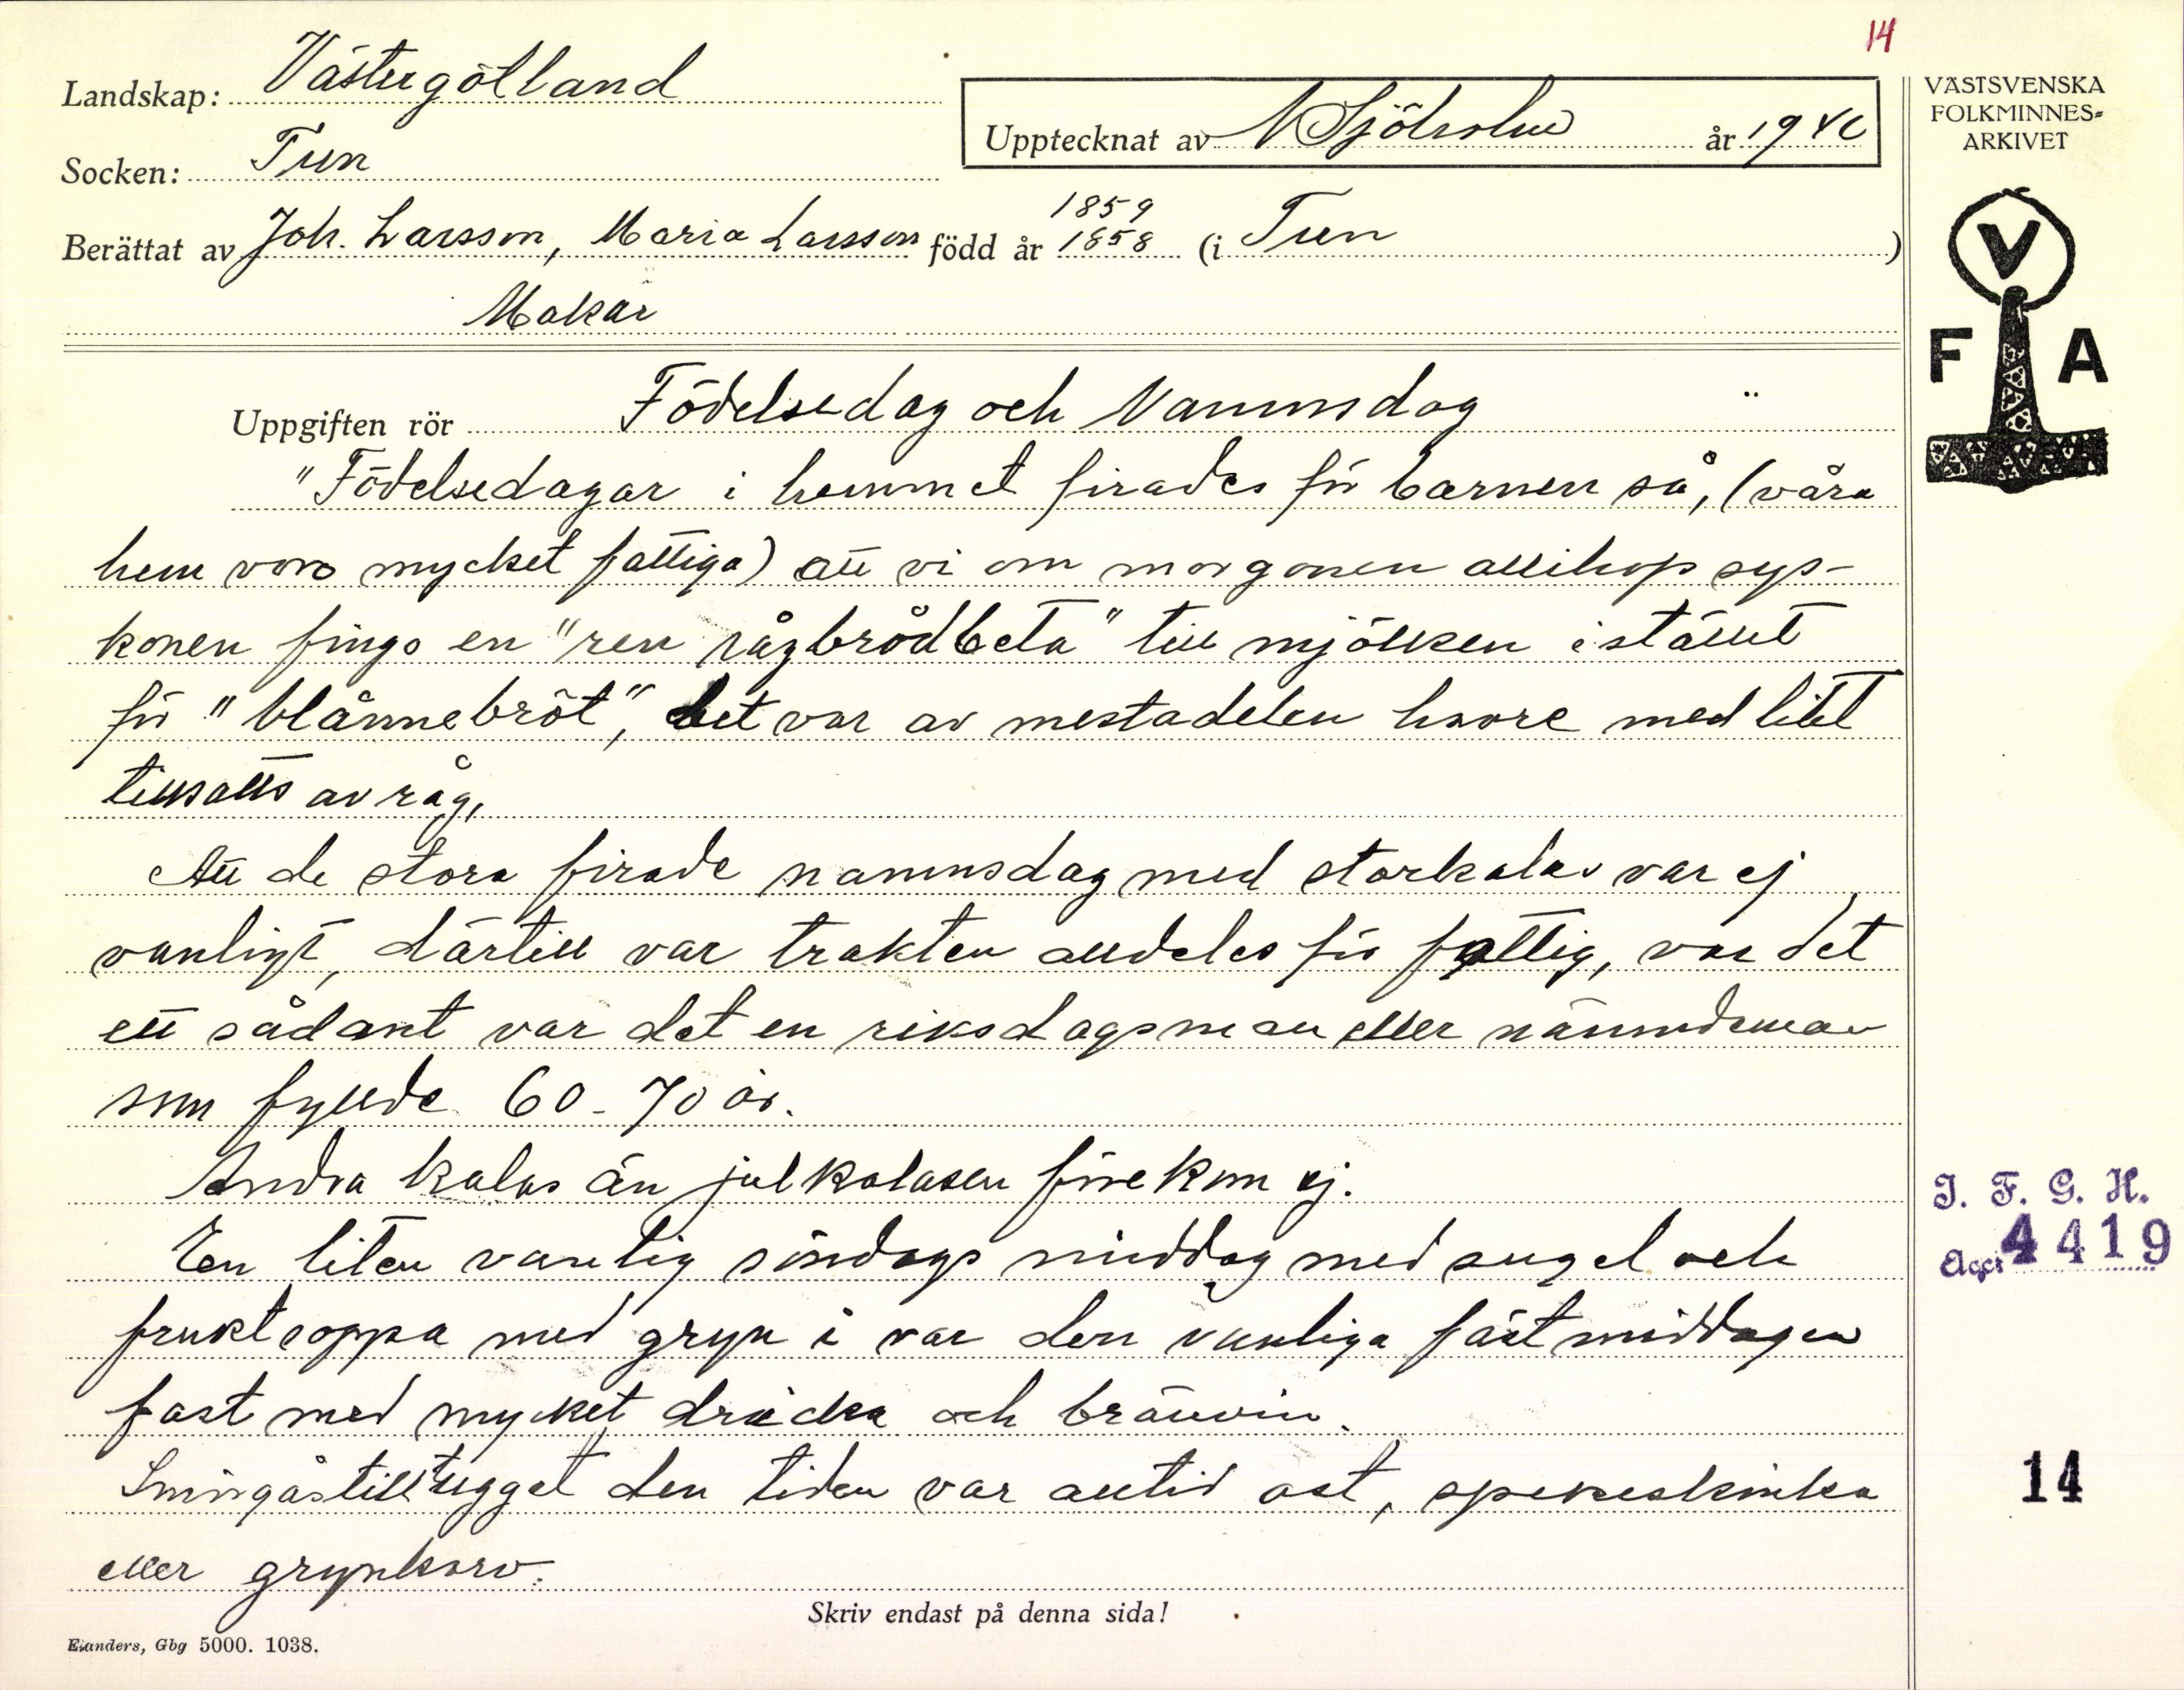 14
Landskap: Västergötland
Socken: Tun
Upptecknat av N Sjöholm år 1940
Berättat av Joh. Larsson, Maria Larsson född år 1859 1858 (i Tun)
Makar
VÄSTSVENSKA
FOLKMINNES-
ARKIVET
V
F A
Uppgiften rör Födelsedag och Namnsdag
"Födelsedagar i hemmet firades för barnen så, (våra
hem voro mycket fattiga) att vi om morgonen allihop sys-
konen fingo en "ren rågbrödbeta" till mjölken istället
för "blånnebröt", det var av mestadelen havre med litet
tillsatts av råg,
Att de stora firade namnsdag med storkalas var ej
vanligt, därtill var trakten alldeles för fattig, var det
ett sådant var det en riksdagsman eller nämndeman
som fyllde 60-70 år.
Andra kalas än julkalasen förekom ej.
En liten vanlig söndags middag med sugel och
fruktsoppa med gryn i var den vanliga fästmiddagen
fast med mycket dricka och brännvin.
Smörgåstilltugget den tiden var alltid ost, spekeskinka
eller grynkorv.
Skriv endast på denna sida!
Elanders, Gbg 5000. 1038.
I. F. G. H.
Acc. 4419
14